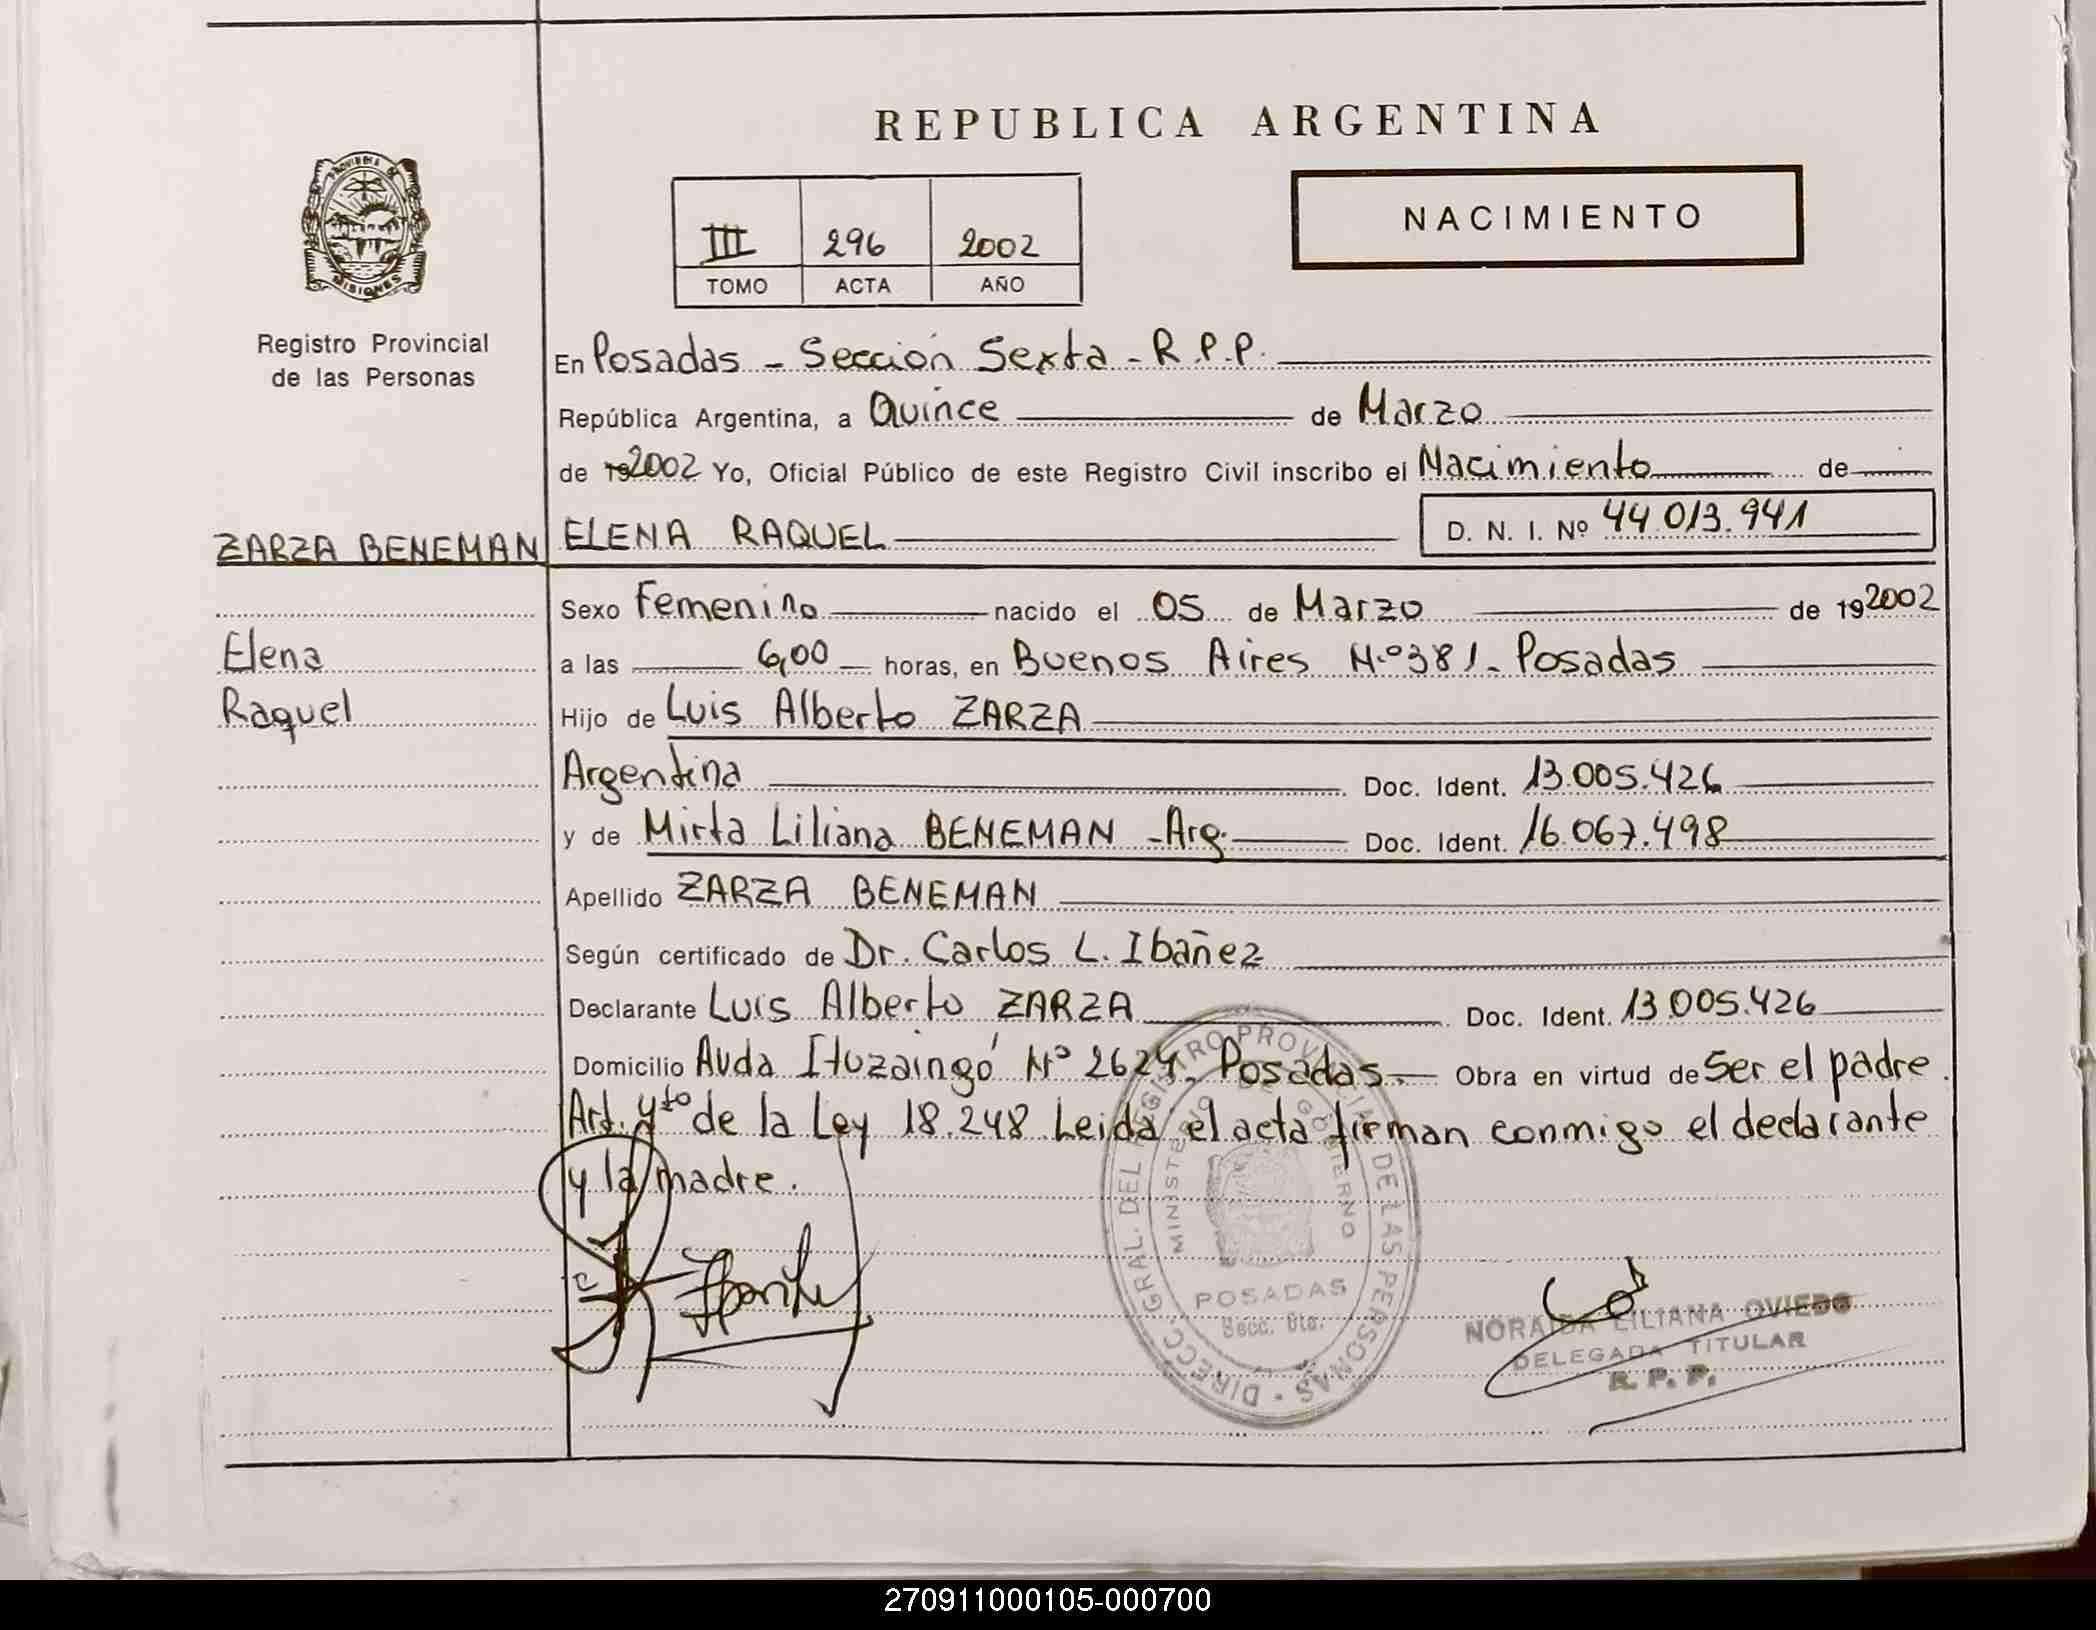 REPUBLICA ARGENTINA
NACIMIENTO
III 296 2002
TOMO ACTA AÑO
PROVINCIA DE
MISIONES
Registro Provincial
de las Personas
En Posadas - Sección Sexta - R.P.P.
República Argentina, a Quince de Marzo
de 192002 Yo, Oficial Público de este Registro Civil inscribo el Nacimiento de
ZARZA BENEMAN ELENA RAQUEL D. N. I. Nº 44.013.941
Sexo Femenino nacido el 05 de Marzo de 192002
Elena a las 6,00 horas, en Buenos Aires N.º 381 - Posadas
Raquel Hijo de Luis Alberto ZARZA
Argentina Doc. Ident. 13.005.426
y de Mirta Liliana BENEMAN - Arg. Doc. Ident. 16.067.498
Apellido ZARZA BENEMAN
Según certificado de Dr. Carlos L. Ibañez
Declarante Luis Alberto ZARZA Doc. Ident. 13.005.426
Domicilio Avda Ituzaingó Nº 2624. Posadas.- Obra en virtud de Ser el padre.
Art. 4to de la Ley 18.248. Leída el acta firman conmigo el declarante
y la madre.
DIRECC. GRAL. DEL REGISTRO PROVINCIAL DE LAS PERSONAS
MINISTERIO DE GOBIERNO
POSADAS
Secc. 6ta.
NORAIDA LILIANA OVIEDO
DELEGADA TITULAR
R. P. P.
270911000105-000700